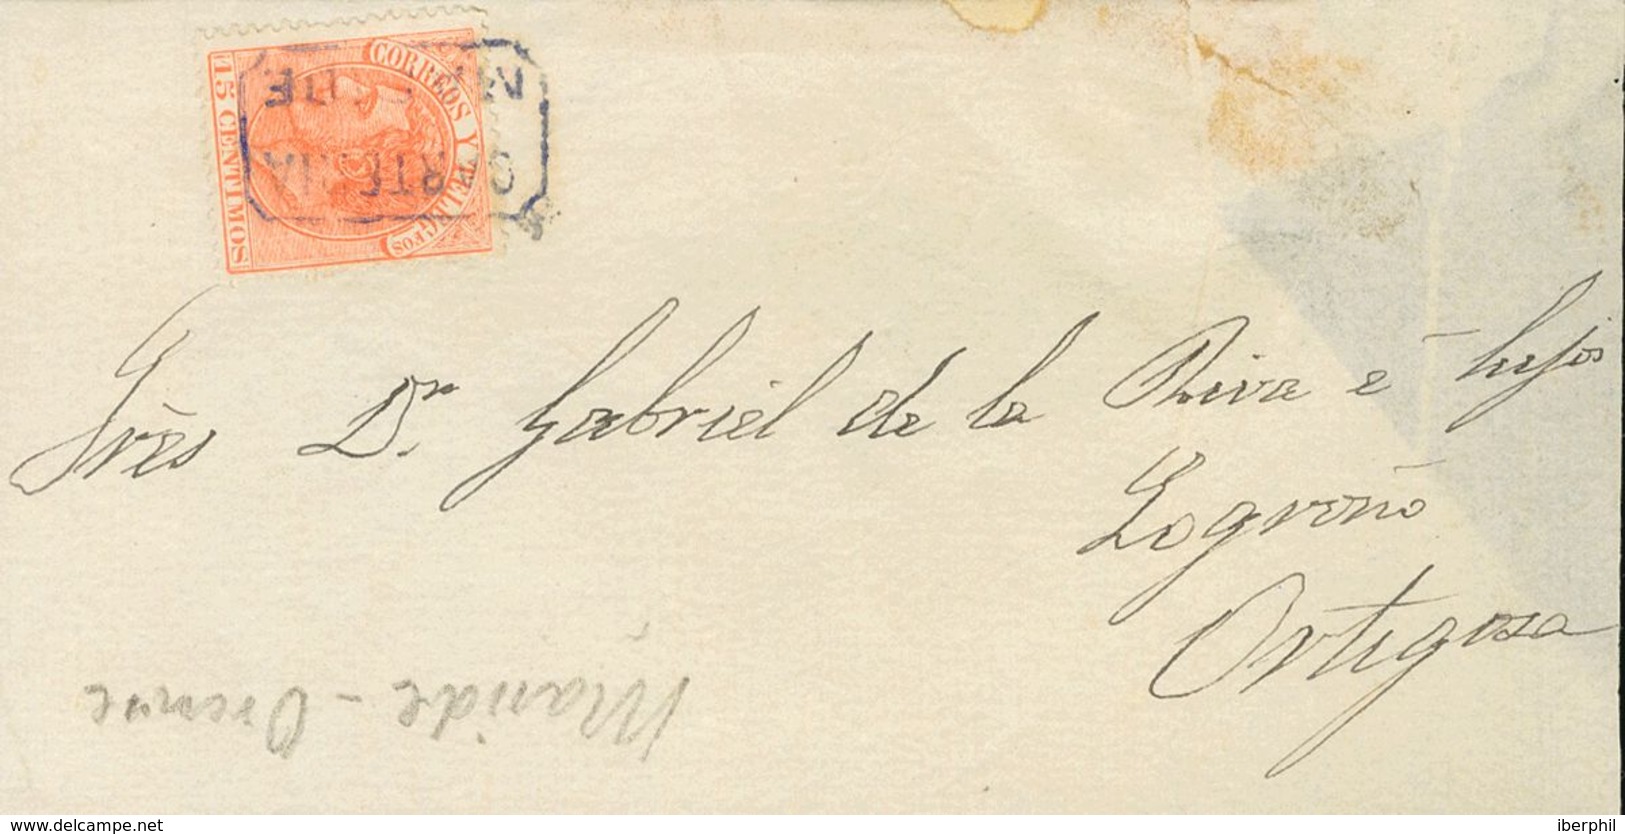 CORREOS Y TELEGFOS
15 CENTIMOS
CARTERIA
Srès Dn. Gabriel de la Riva é hijos
Logroño
Ortigosa
Maside - Orense
www.delcampe.net
iberphil